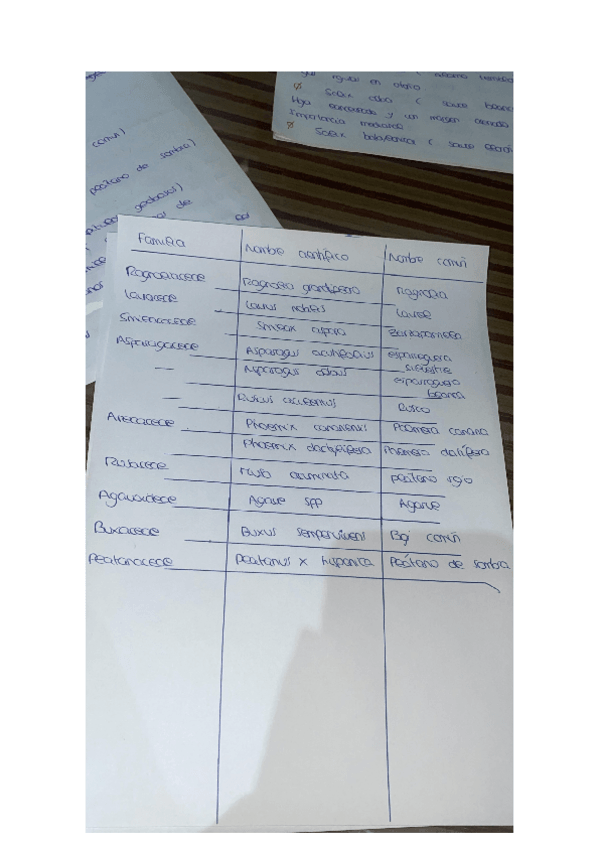 común)
plátano de sombra)
de
regular en otoño
Salix alba ( sauce blanco
Hoja lanceolada y un margen aserrado
Importancia medicinal
Salix babilonica ( sauce llorón
Familia Nombre científico Nombre común
Magnoliaceae Magnolia grandiflora Magnolia
Lauraceae Laurus nobilis Laurel
Smilacaceae Smilax aspera Zarzaparrilla
Asparagaceae Asparagus acutifolius esparraguera silvestre
— Asparagus albus esparraguera blanca
— Ruscus aculeatus Rusco
Arecaceae Phoenix canariensis Palmera canaria
Phoenix dactylifera Palmera datilfera
Musaceae Musa acuminata plátano rojo
Agavaceae Agave spp Agave
Buxaceae Buxus sempervivens Boj común
Platanaceae Platanus x hispanica Plátano de sombra